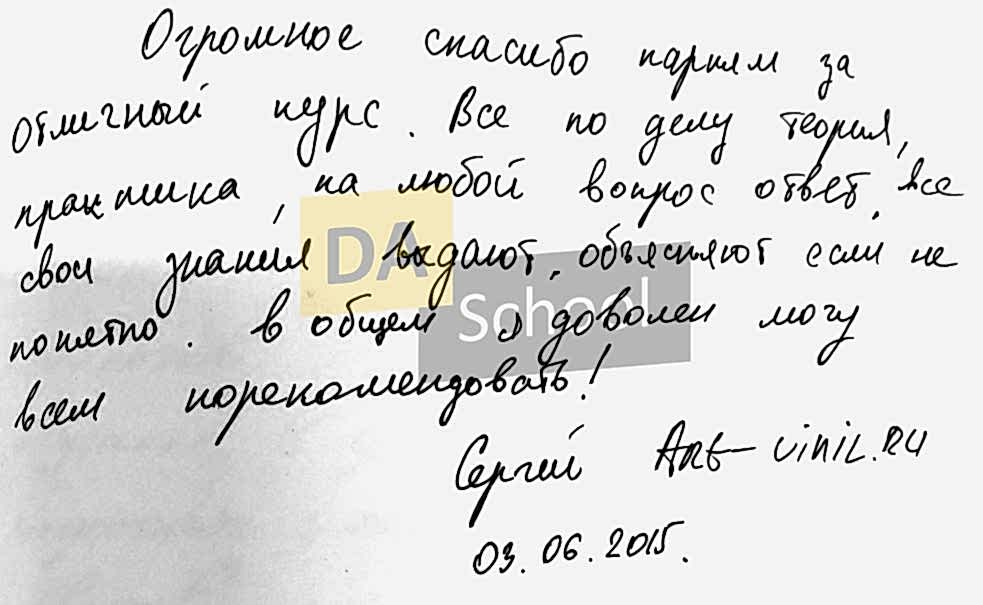 Огромное спасибо парням за
отличный курс. Все по делу теория,
практика, на любой вопрос ответ, все
свои знания выдают, объясняют если не
понятно. в общем я доволен могу
всем порекомендовать!
Сергей Art-vinil.RU
03.06.2015.
DA
School